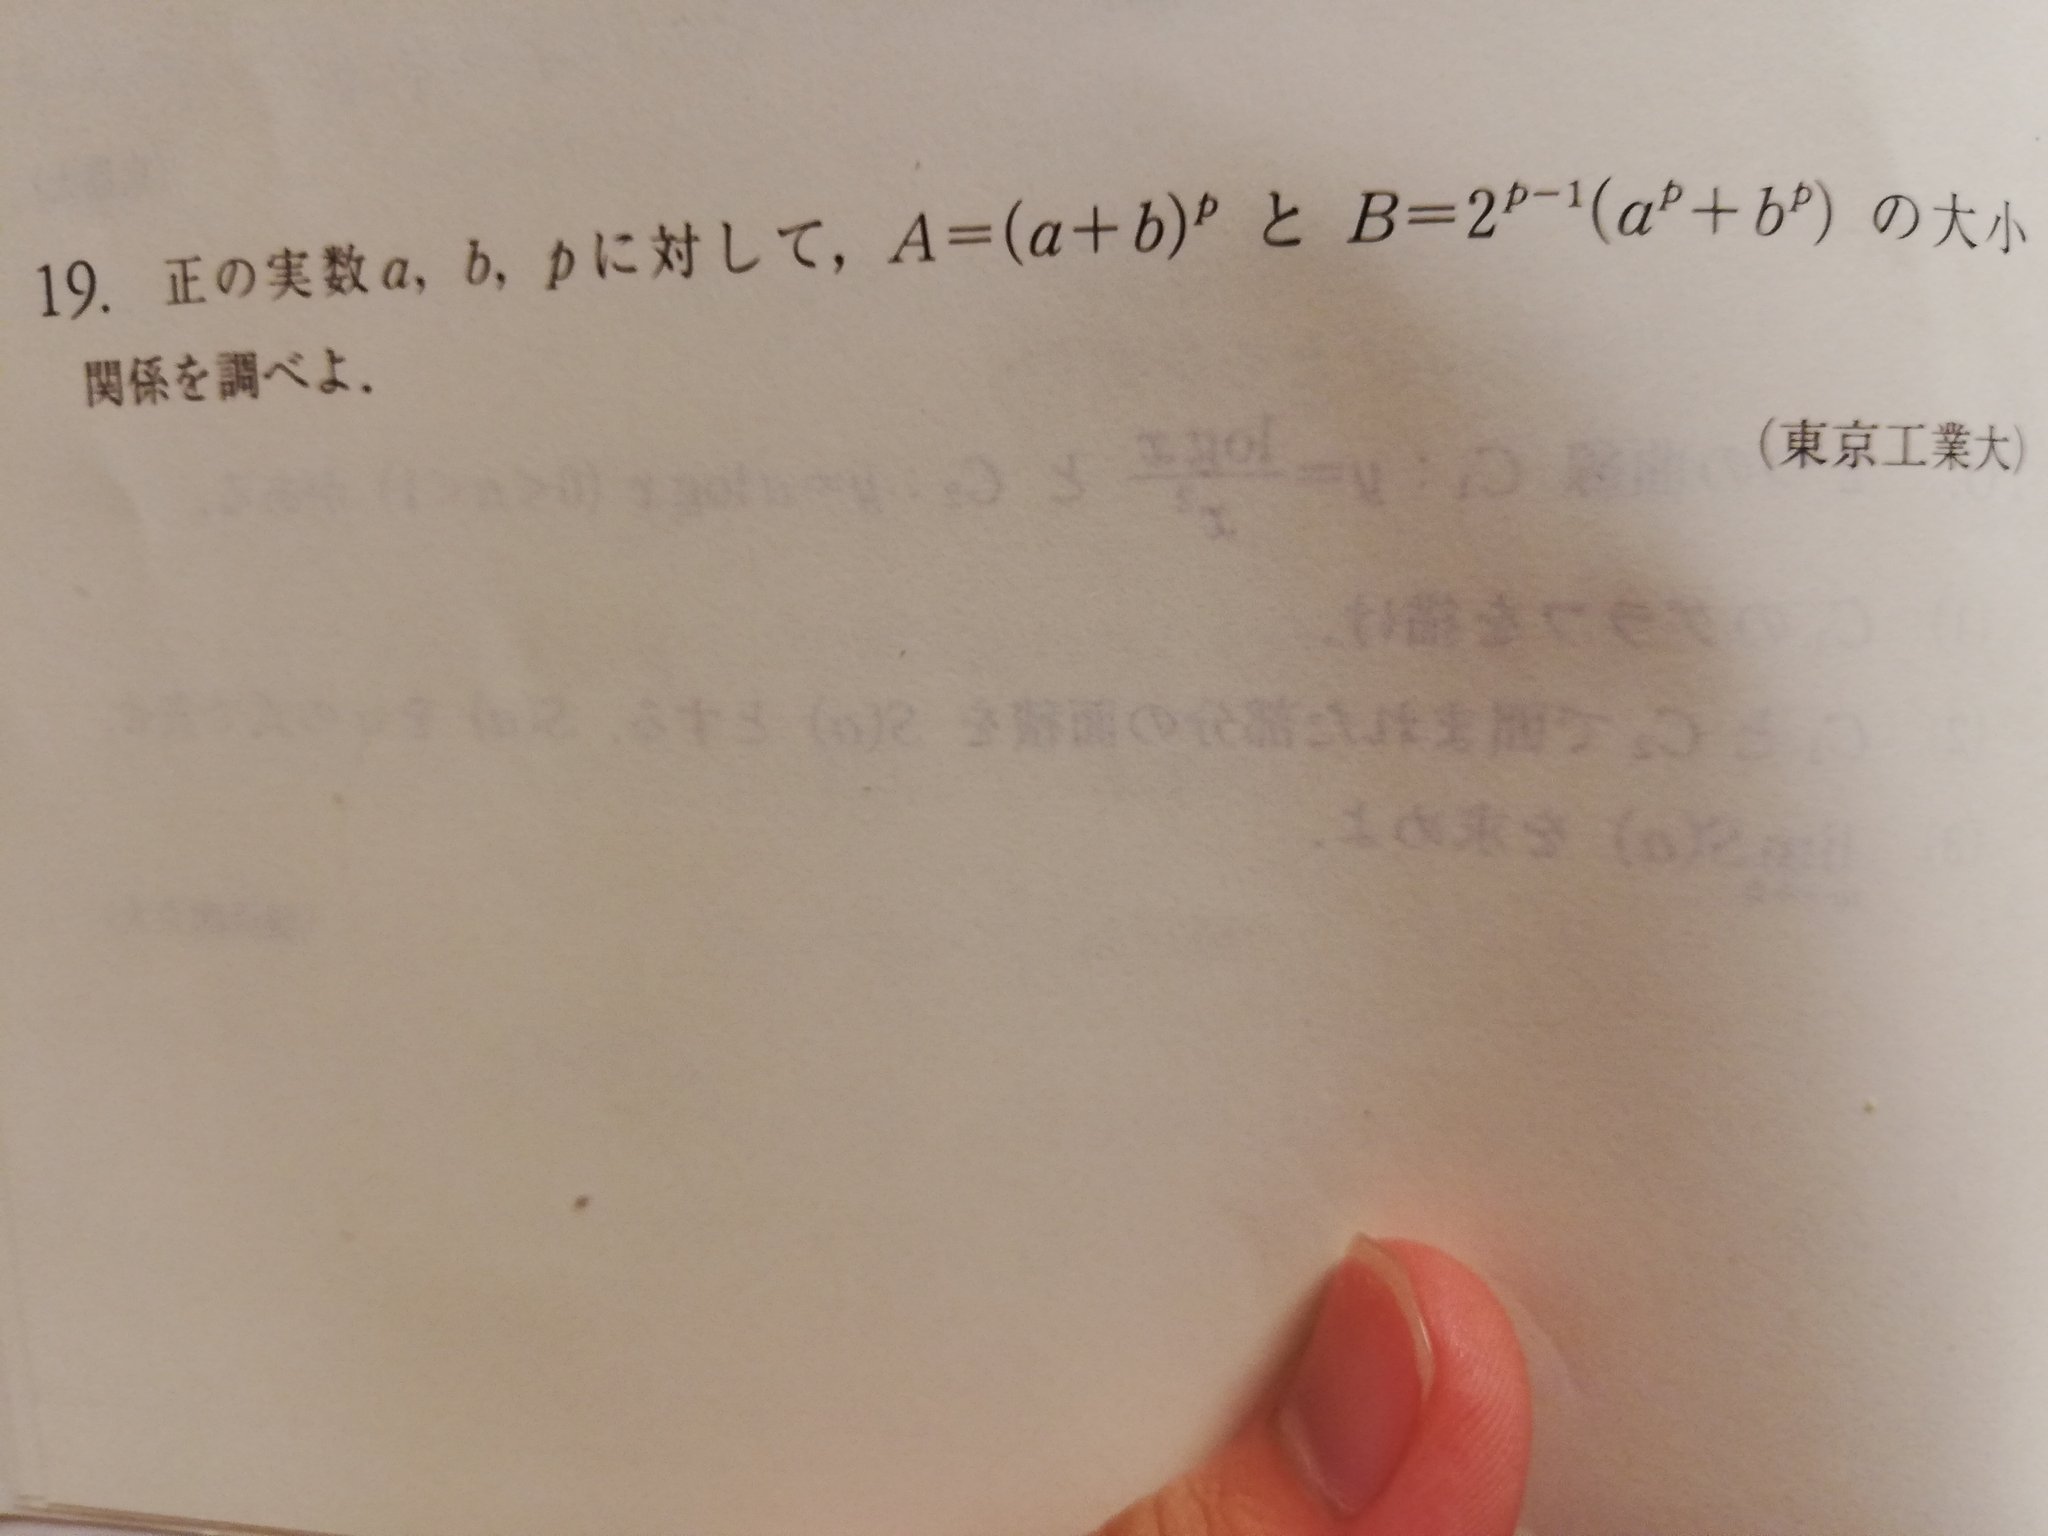 19. 正の実数a, b, pに対して, A=(a+b)^p と B=2^{p-1}(a^p+b^p) の大小
関係を調べよ.
(東京工業大)